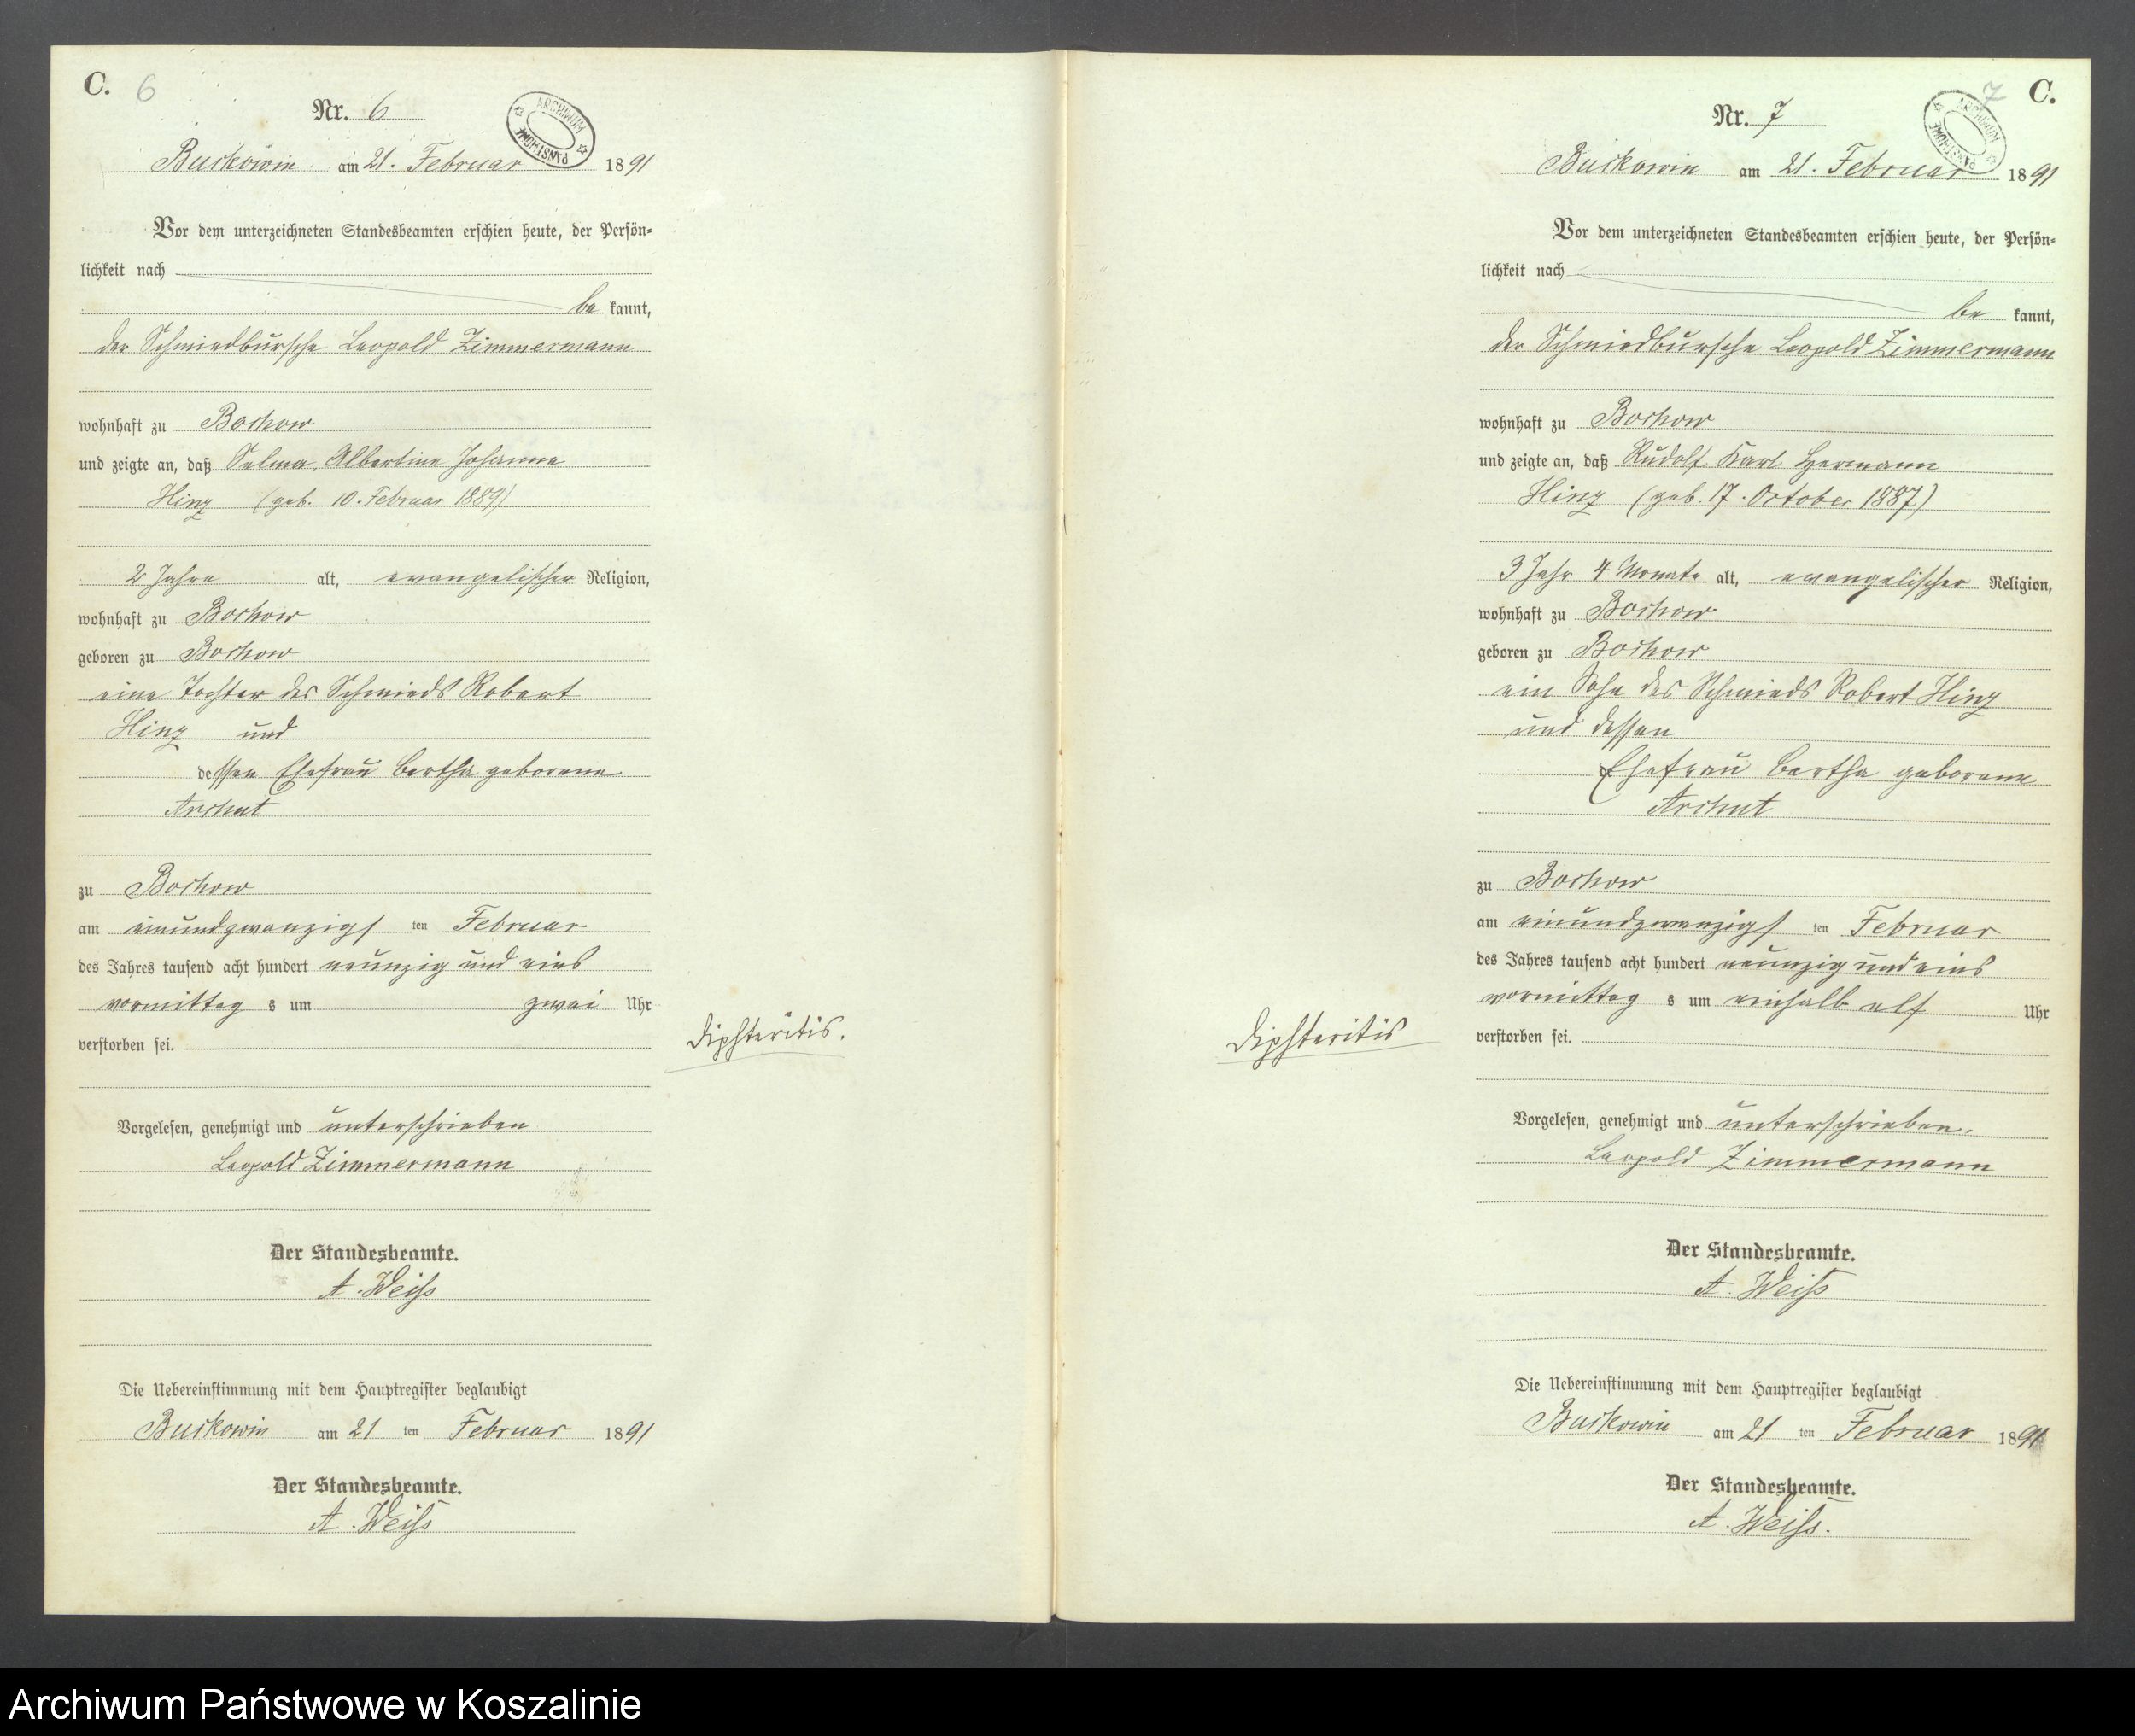 C. 6
Nr. 6
ARCHIWUM PAŃSTWOWE
Buckowin am 21. Februar 1891
Vor dem unterzeichneten Standesbeamten erschien heute, der Persön-
lichkeit nach
be kannt,
der Schmiedbursche Leopold Zimmermann
wohnhaft zu Bochow
und zeigte an, daß Selma, Albertine Johanna
Hinz (geb. 10. Februar 1889)
2 Jahre alt, evangelischer Religion,
wohnhaft zu Bochow
geboren zu Bochow
eine Tochter des Schmieds Robert
Hinz und
dessen Ehefrau Bertha geborene
Archut
zu Bochow
am einundzwanzigs ten Februar
des Jahres tausend acht hundert neunzig und eins
vormittag s um zwei Uhr
verstorben sei.
Diphteritis.
Vorgelesen, genehmigt und unterschrieben
Leopold Zimmermann
Der Standesbeamte.
A. Weiß
Die Uebereinstimmung mit dem Hauptregister beglaubigt
Buckowin am 21 ten Februar 1891
Der Standesbeamte.
A. Weiß
7 C.
Nr. 7
ARCHIWUM PAŃSTWOWE
Buckowin am 21. Februar 1891
Vor dem unterzeichneten Standesbeamten erschien heute, der Persön-
lichkeit nach
be kannt,
der Schmiedbursche Leopold Zimmermann
wohnhaft zu Bochow
und zeigte an, daß Rudolf Karl Hermann
Hinz (geb. 17. October 1887)
3 Jahr 4 Monate alt, evangelischer Religion,
wohnhaft zu Bochow
geboren zu Bochow
ein Sohn des Schmieds Robert Hinz
und dessen
Ehefrau Bertha geborene
Archut
zu Bochow
am einundzwanzigs ten Februar
des Jahres tausend acht hundert neunzig und eins
vormittag s um einhalb elf Uhr
verstorben sei.
Diphteritis
Vorgelesen, genehmigt und unterschrieben.
Leopold Zimmermann
Der Standesbeamte.
A. Weiß
Die Uebereinstimmung mit dem Hauptregister beglaubigt
Buckowin am 21 ten Februar 1891
Der Standesbeamte.
A. Weiß.
Archiwum Państwowe w Koszalinie